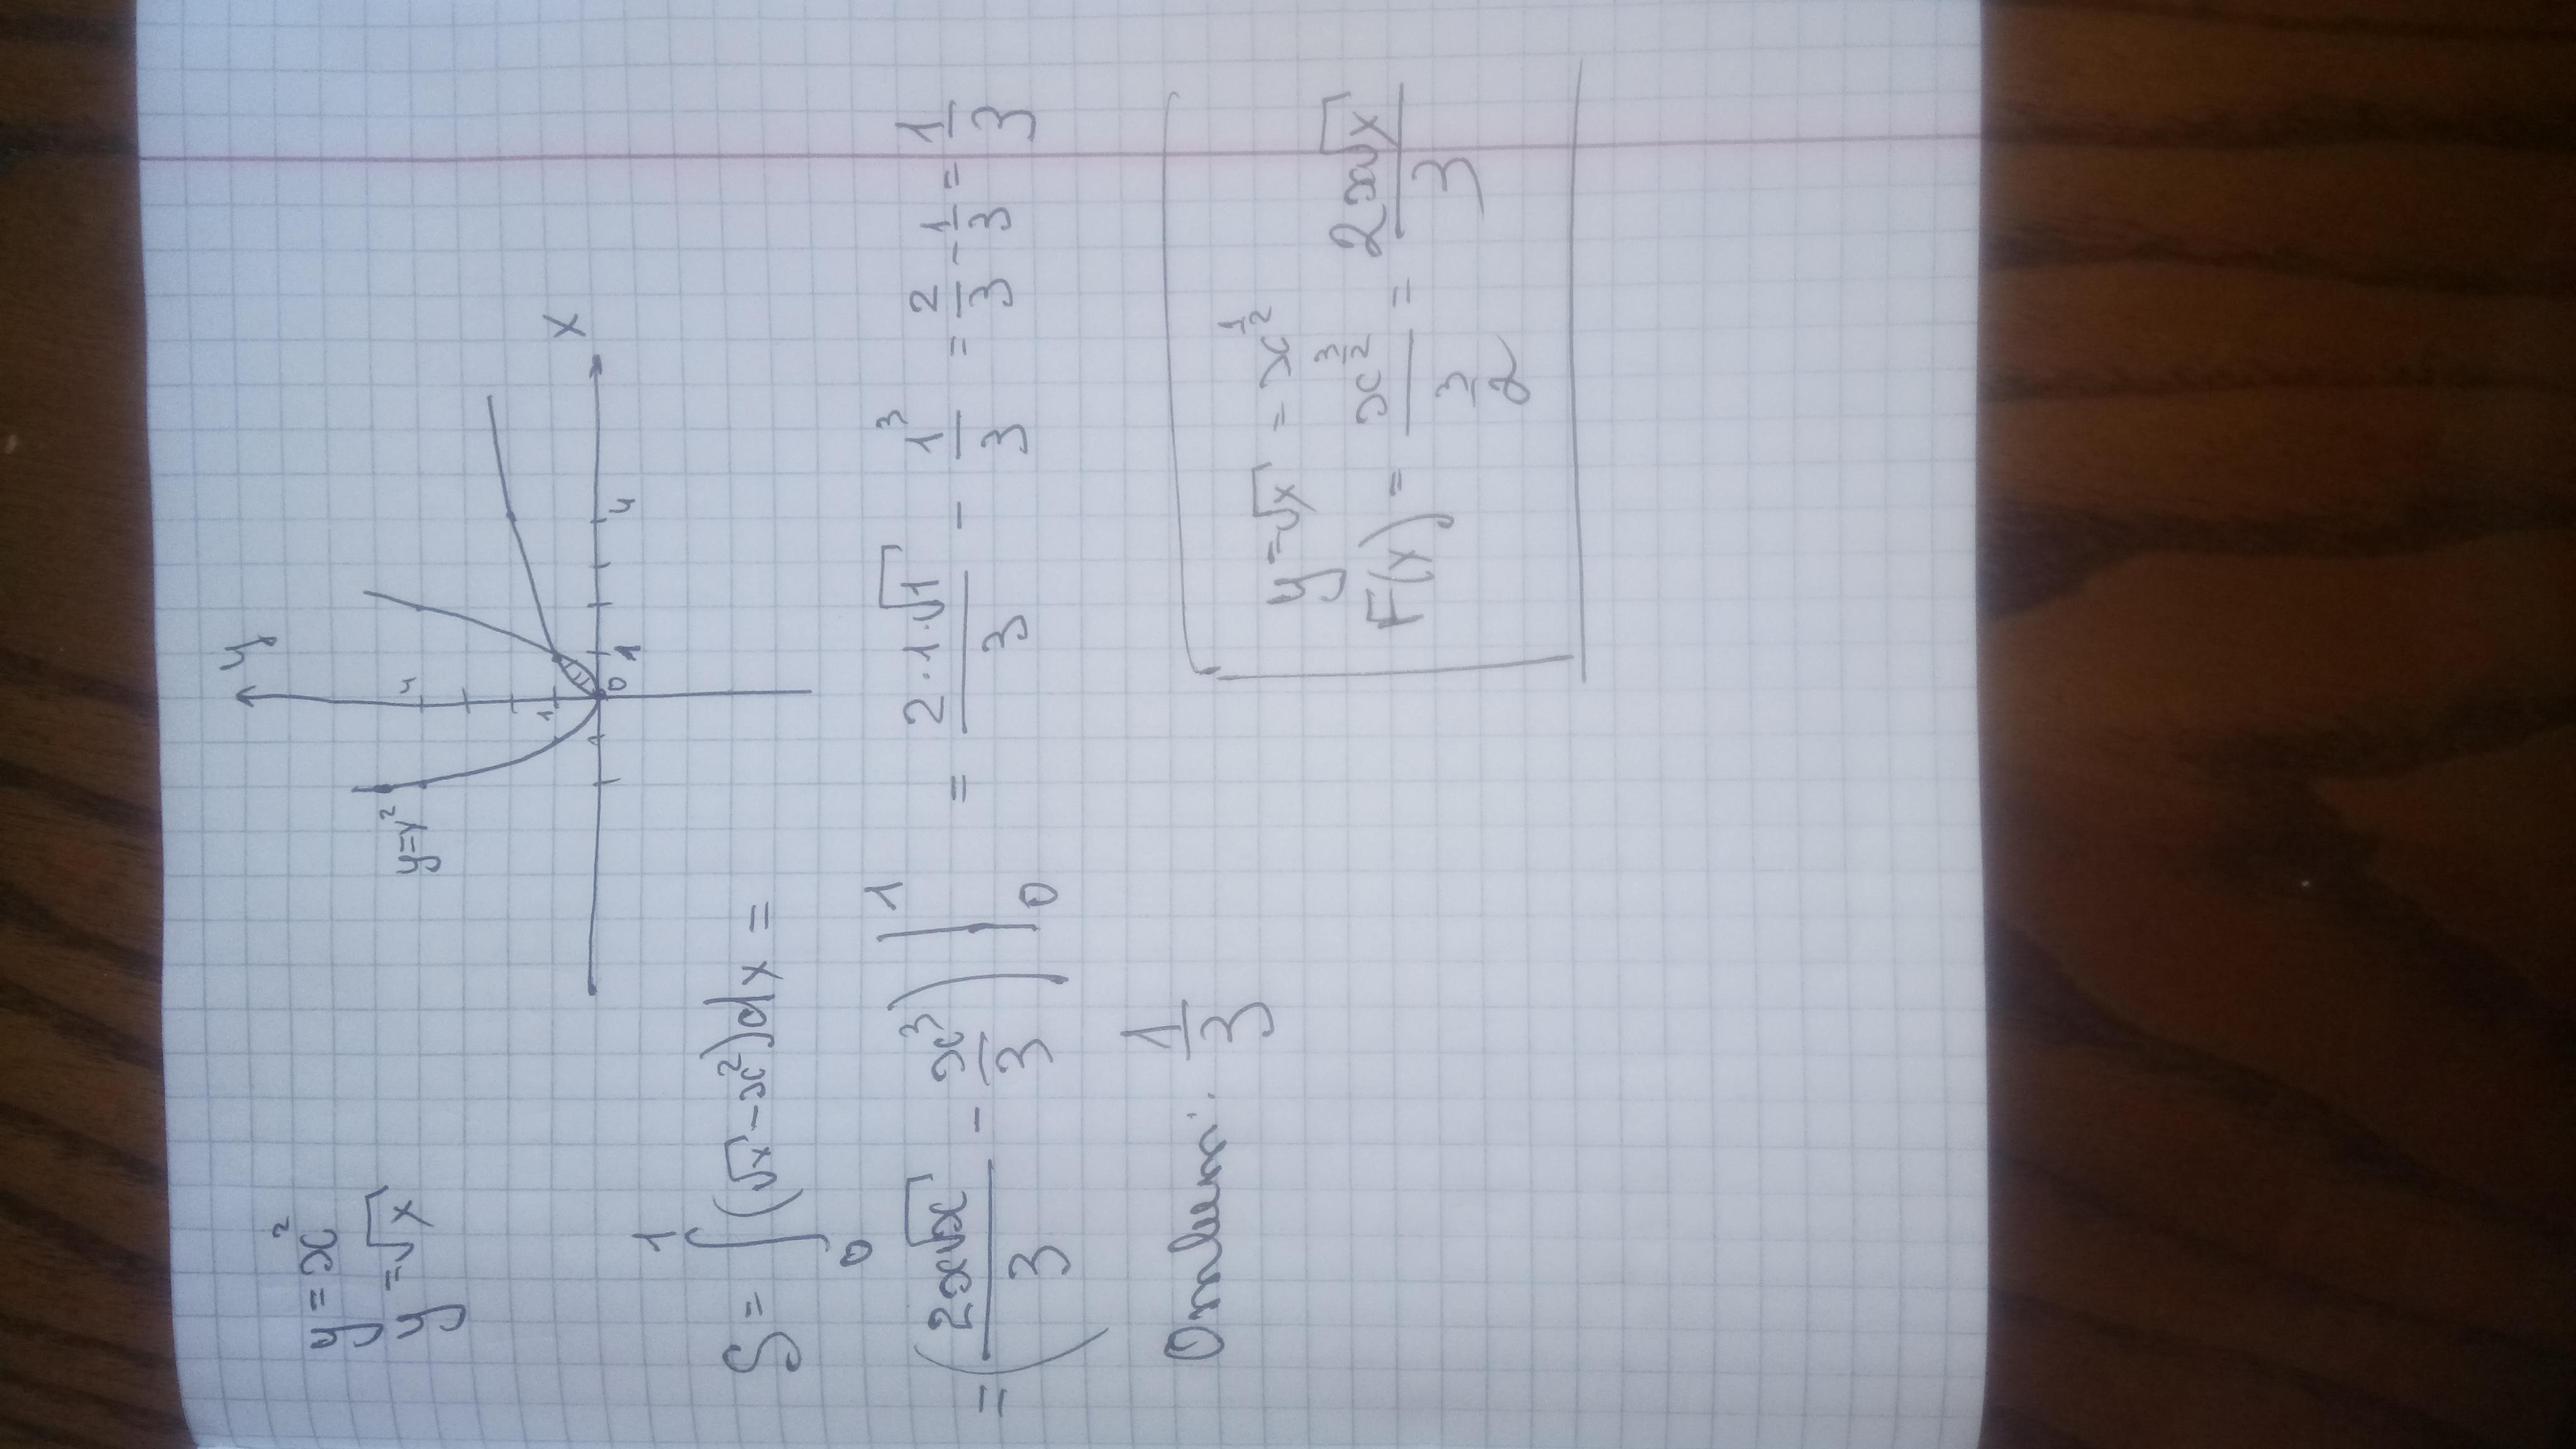 y = x²
y = √x
y
x
y=x²
4
1
0
1
4
S = ∫₀¹ (√x − x²)dx =
= (2x√x/3 − x³/3)|₀¹ = 2·1·√1/3 − 1³/3 = 2/3 − 1/3 = 1/3
Ответ: 1/3
y = √x = x^(1/2)
F(x) = x^(3/2)/(3/2) = 2x√x/3